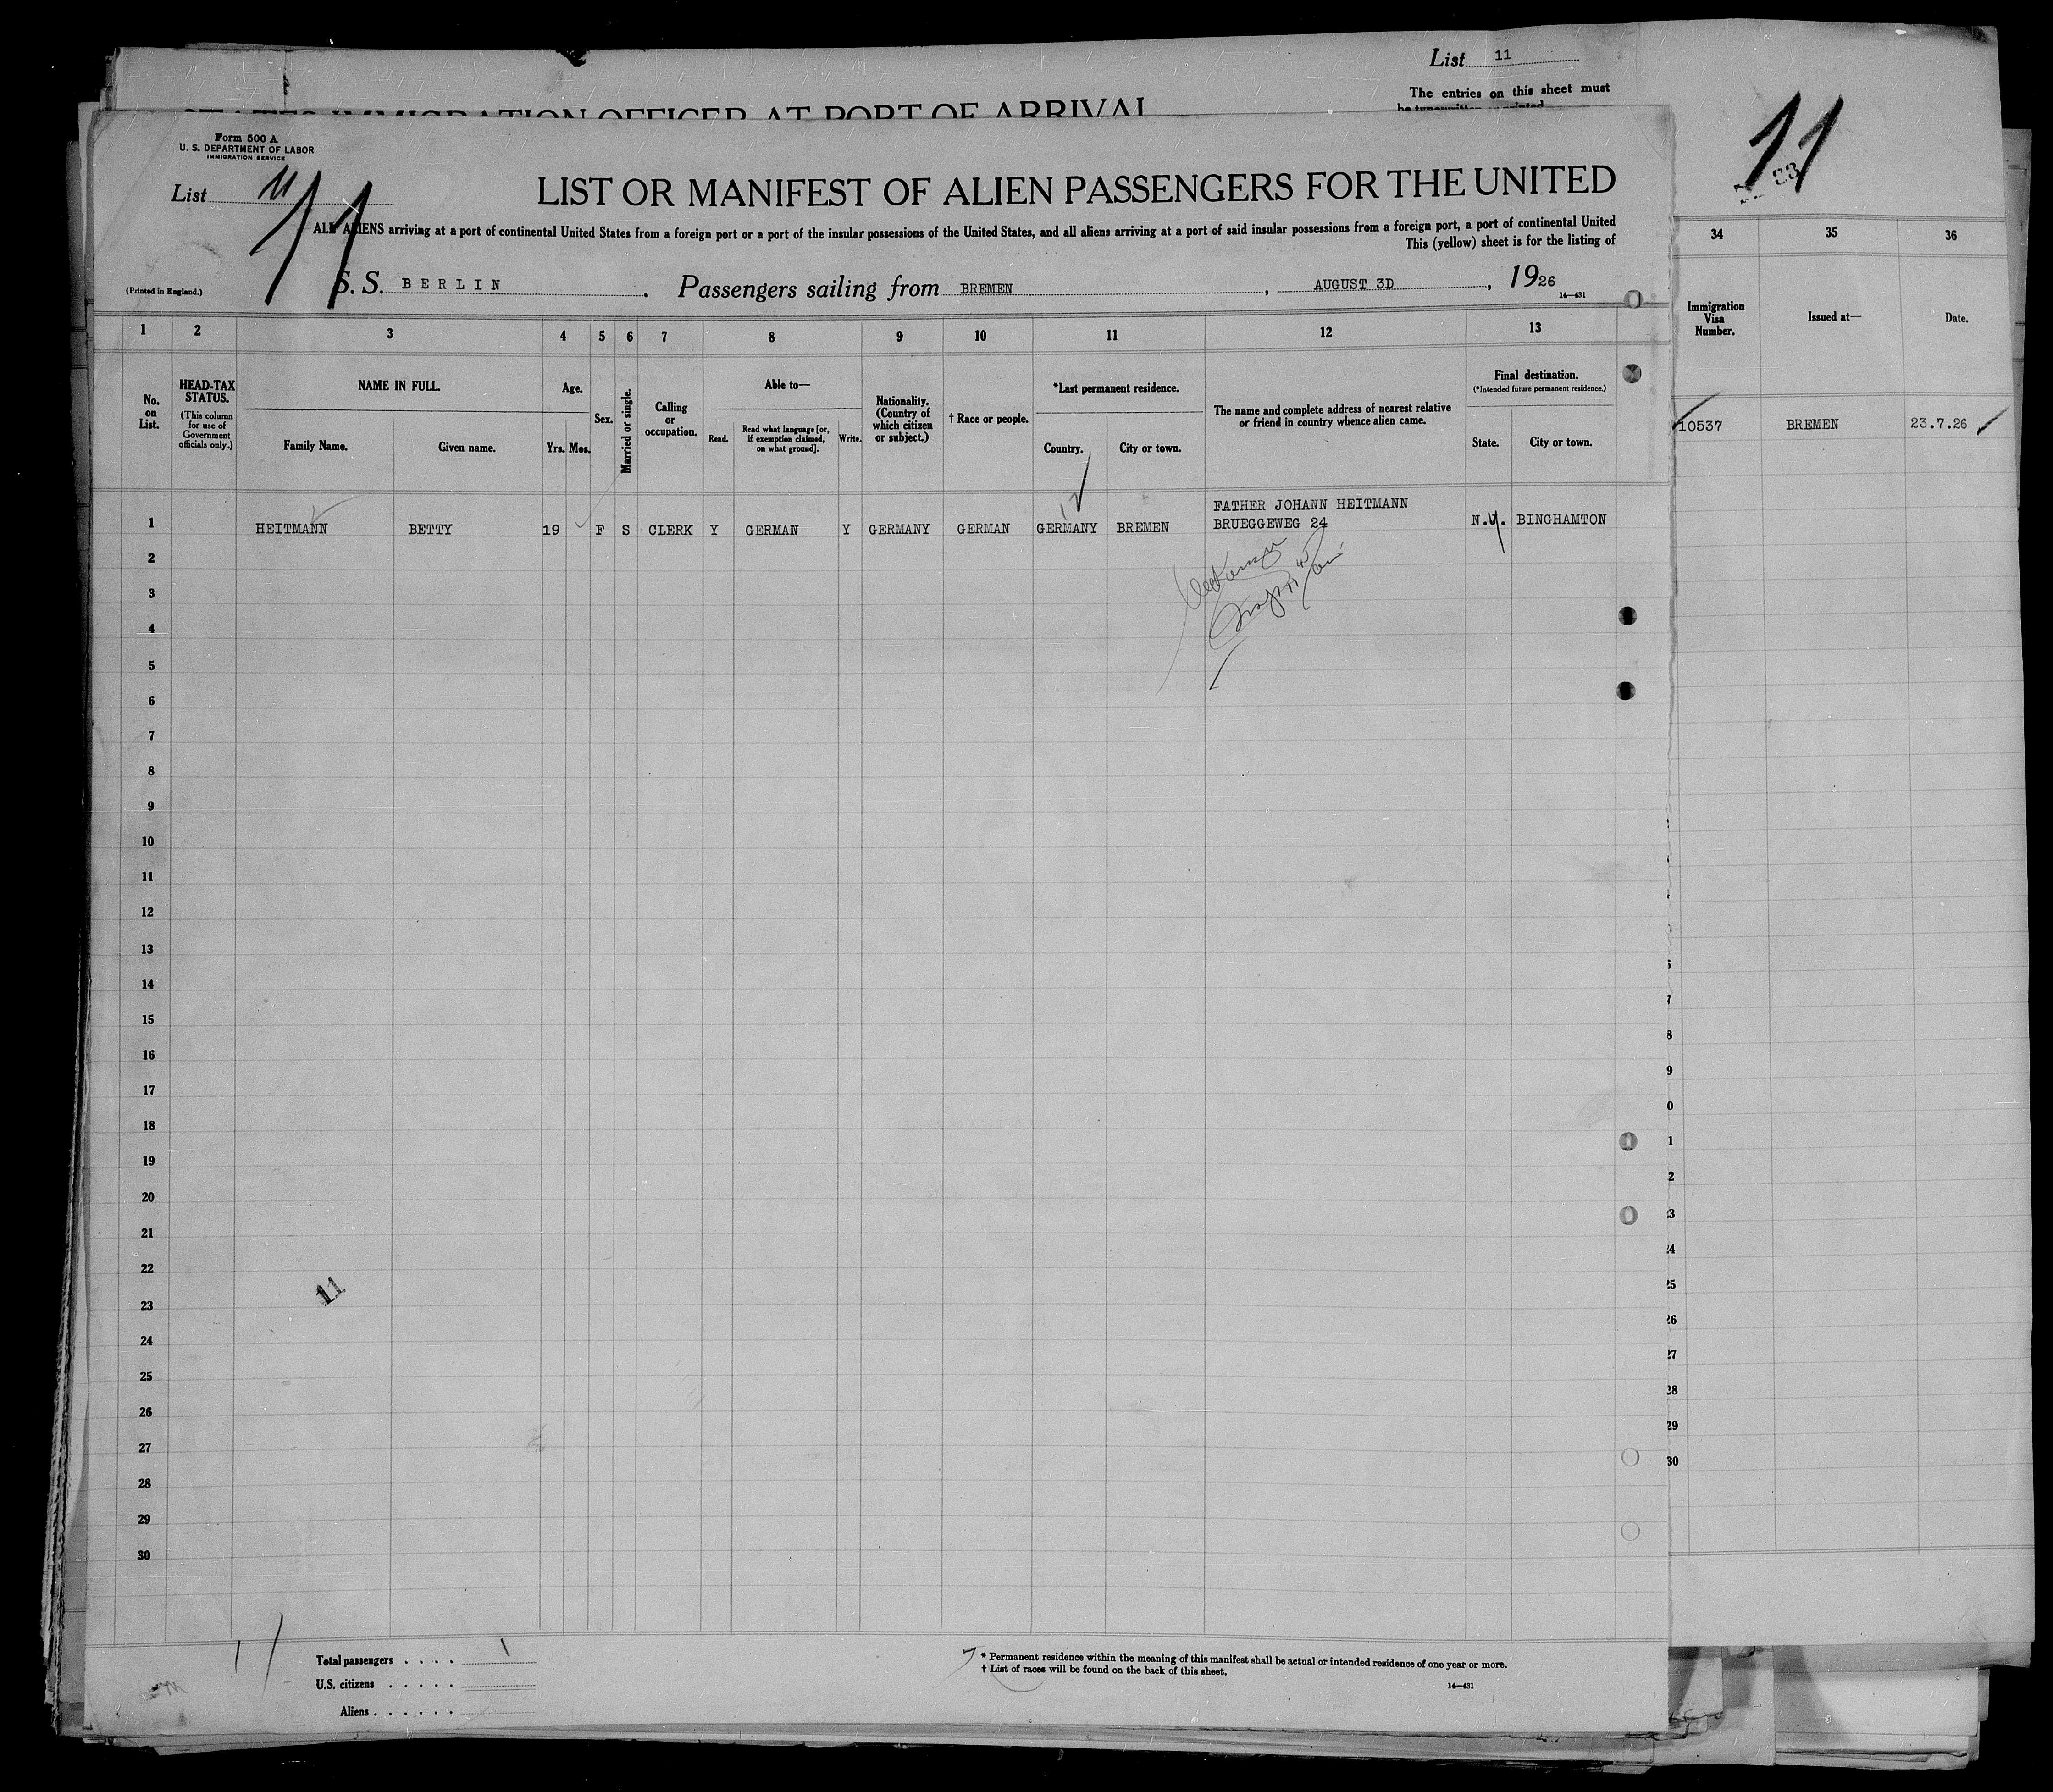 List 11
The entries on this sheet must
be typewritten or printed.
STATES IMMIGRATION OFFICER AT PORT OF ARRIVAL
11
Form 500 A
U. S. DEPARTMENT OF LABOR
IMMIGRATION SERVICE
List 11
11
LIST OR MANIFEST OF ALIEN PASSENGERS FOR THE UNITED
ALL ALIENS arriving at a port of continental United States from a foreign port or a port of the insular possessions of the United States, and all aliens arriving at a port of said insular possessions from a foreign port, a port of continental United
This (yellow) sheet is for the listing of
(Printed in England.)
S. S. BERLIN. Passengers sailing from BREMEN, AUGUST 3D, 1926
14—431
1 2 3 4 5 6 7 8 9 10 11 12 13
34 35 36
No. on List.
HEAD-TAX STATUS.
(This column for use of Government officials only.)
NAME IN FULL.
Family Name. Given name.
Age.
Yrs. Mos.
Sex.
Married or single.
Calling or occupation.
Able to—
Read. Read what language [or, if exemption claimed, on what ground]. Write.
Nationality. (Country of which citizen or subject.)
† Race or people.
*Last permanent residence.
Country. City or town.
The name and complete address of nearest relative or friend in country whence alien came.
Final destination.
(*Intended future permanent residence.)
State. City or town.
Immigration Visa Number.
Issued at—
Date.
1 HEITMANN BETTY 19 F S CLERK Y GERMAN Y GERMANY GERMAN GERMANY BREMEN FATHER JOHANN HEITMANN
BRUEGGEWEG 24 N.Y. BINGHAMTON
10537 BREMEN 23.7.26
2
3
4
5
6
7
8
9
10
11
12
13
14
15
16
17
18
19
20
21
22
23
24
25
26
27
28
29
30
11
Total passengers . . . . 1
U.S. citizens . . . . .
Aliens . . . . . .
* Permanent residence within the meaning of this manifest shall be actual or intended residence of one year or more.
† List of races will be found on the back of this sheet.
14—431